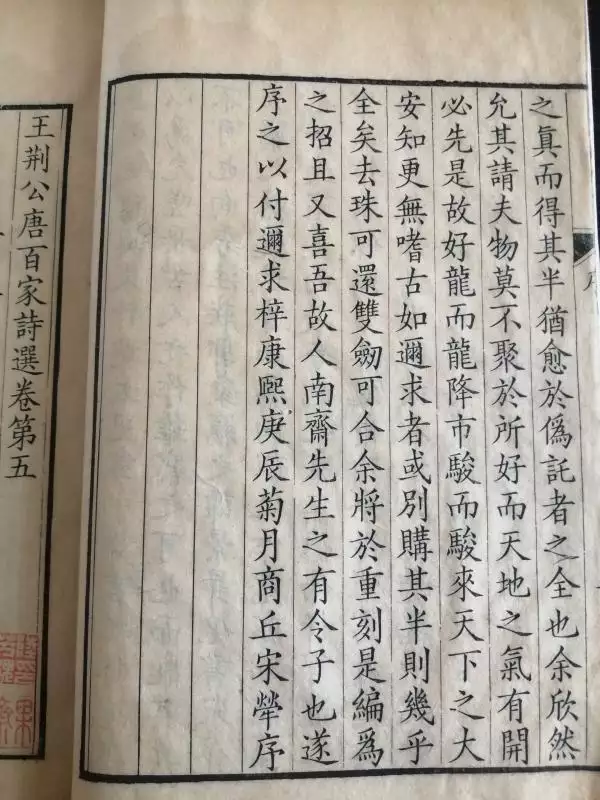 之眞而得其半猶愈於僞託者之全也余欣然
允其請夫物莫不聚於所好而天地之氣有開
必先是故好龍而龍降市駿而駿來天下之大
安知更無嗜古如邇求者或別購其半則幾乎
全矣去珠可還雙劒可合余將於重刻是編爲
之招且又喜吾故人南齋先生之有令子也遂
序之以付邇求梓康熙庚辰菊月商丘宋犖序
王荆公唐百家詩選卷第五